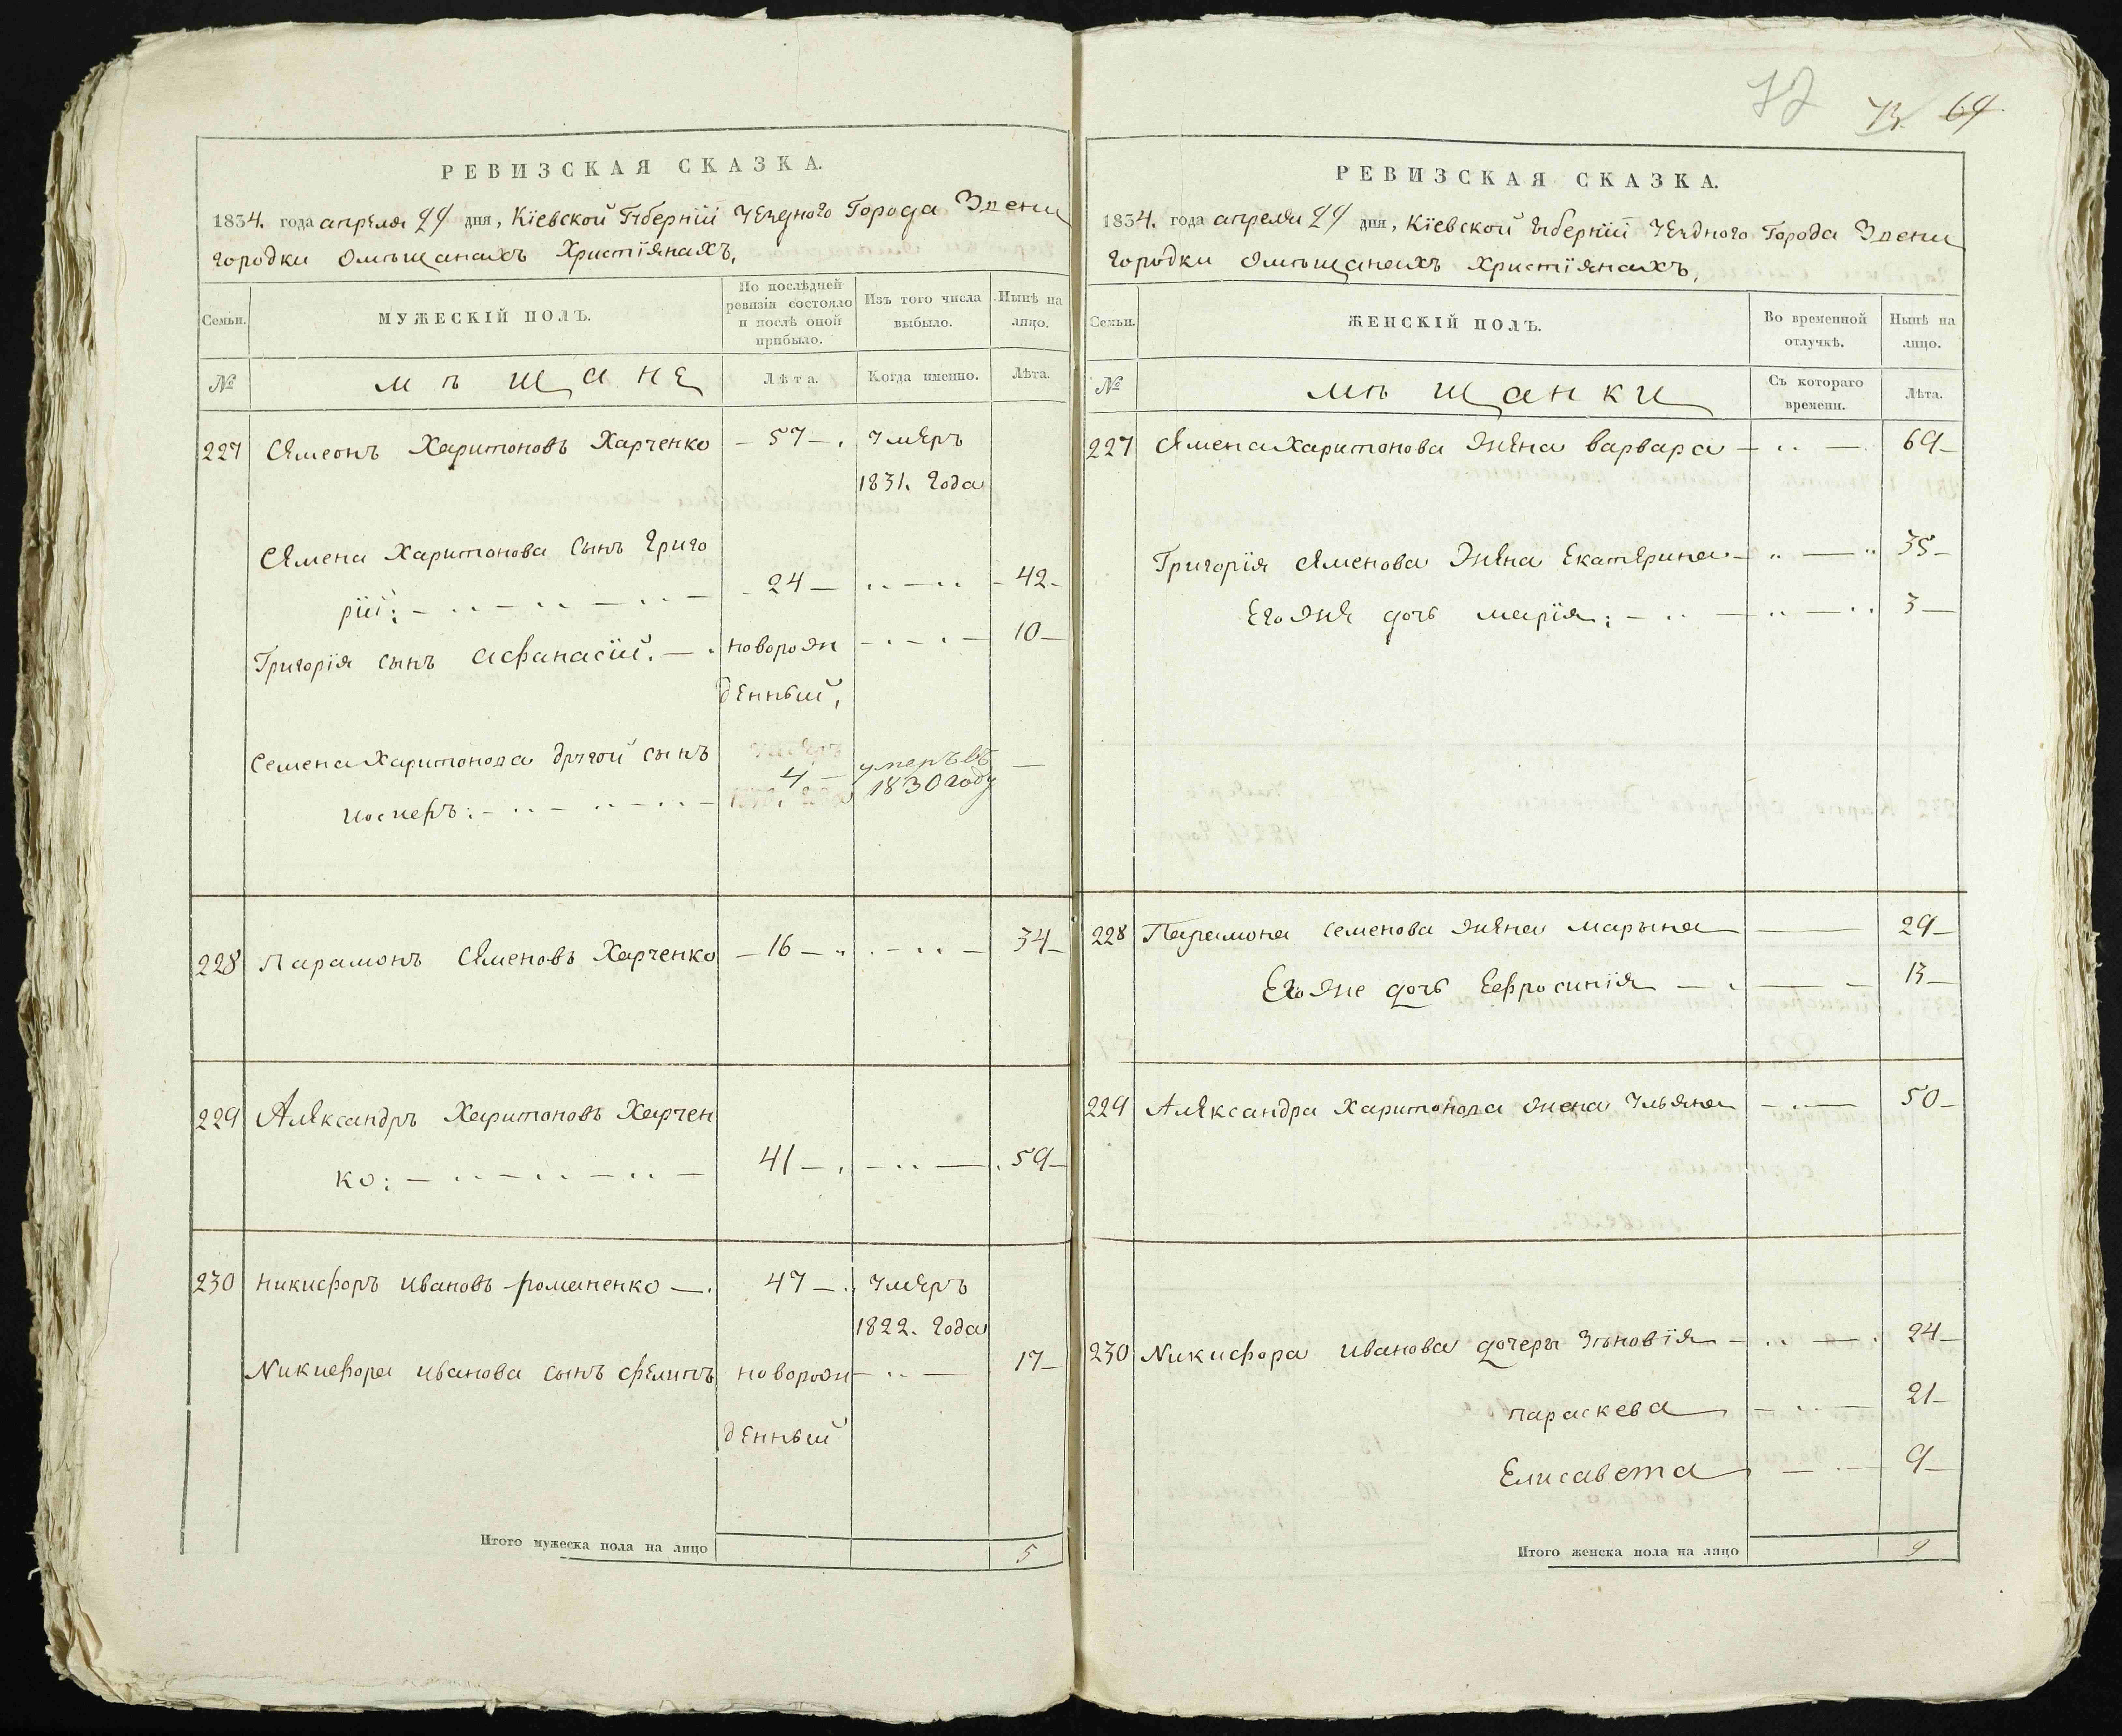 72 73. 64
РЕВИЗСКАЯ СКАЗКА.
1834. года апреля 24 дня, Кіевской Губерніи Уезднаго Города Звени
городки Омѣщанахъ Христіянахъ.
Семьи.
МУЖЕСКІЙ ПОЛЪ.
По послѣдней ревизіи состояло и послѣ оной прибыло.
Изъ того числа выбыло.
Нынѣ на лицо.
№ мѣщане Лѣта. Когда именно. Лѣта.
227 Семеонъ Харитоновъ Харченко — 57 — умеръ
1831. года
Семена Харитонова сынъ Григо
рій: 24 — 42
Григорія сынъ Афанасій. — новорож 10
денный,
Семена Харитонова другой сынъ 4 — умеръ въ —
1830 году
Иосиеръ:
228 Парамонъ Семеновъ Харченко — 16 — 34
229 Александръ Харитоновъ Харчен
ко: 41 — 59
230 Никифоръ Ивановъ Романенко — 47 — умеръ
1822. года
Никифора Иванова сынъ Филипъ новорож — 17
денный
Итого мужеска пола на лицо 5
РЕВИЗСКАЯ СКАЗКА.
1834. года апреля 24 дня, Кіевской Губерніи Уезднаго Города Звени
городки Омѣщанахъ Христіянахъ,
Семьи.
ЖЕНСКІЙ ПОЛЪ.
Во временной отлучкѣ.
Нынѣ на лицо.
№ мѣщанки Съ котораго времени. Лѣта.
227 Семена Харитонова жена Варвара — 69
Григорія Семенова жена Екатерина — 35
Его же дочь Марія: — 3
228 Парамона Семенова жена Марына — 29
Его же дочь Ефросинія — 13
229 Александра Харитонова жена Ульяна — 50
230 Никифора Иванова дочери Зѣновія — 24
Параскева — 21
Елисавета — 9
Итого женска пола на лицо 9